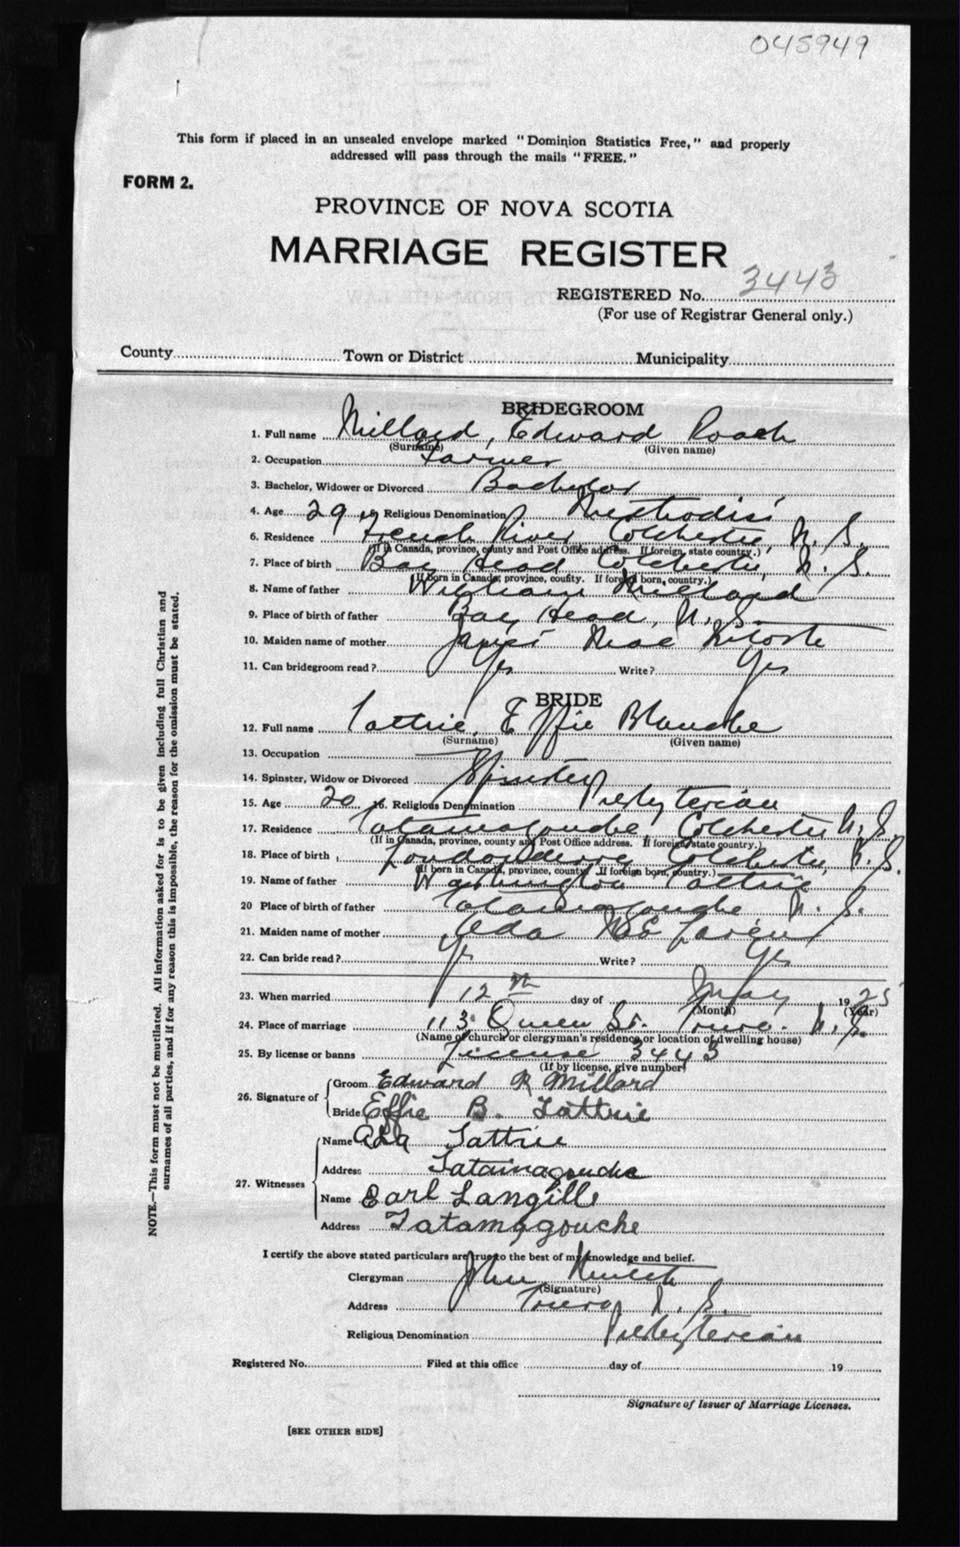 045949
This form if placed in an unsealed envelope marked "Dominion Statistics Free," and properly
addressed will pass through the mails "FREE."
FORM 2.
PROVINCE OF NOVA SCOTIA
MARRIAGE REGISTER
REGISTERED No. 3443
(For use of Registrar General only.)
County Town or District Municipality
BRIDEGROOM
1. Full name Millard, Edward Roach
(Surname) (Given name)
2. Occupation Farmer
3. Bachelor, Widower or Divorced Bachelor
4. Age 29 Religious Denomination Methodist
6. Residence French River Colchester, N. S.
(If in Canada, province, county and Post Office address. If foreign, state country.)
7. Place of birth Bay Head Colchester, N. S.
(If born in Canada, province, county. If foreign born, country.)
8. Name of father William Millard
9. Place of birth of father Bay Head, N. S.
10. Maiden name of mother
11. Can bridegroom read? Yes Write? Yes
BRIDE
12. Full name Tattrie, Effie Blanche
(Surname) (Given name)
13. Occupation
14. Spinster, Widow or Divorced Spinster
15. Age 20 16. Religious Denomination Presbyterian
17. Residence Tatamagouche, Colchester N. S.
(If in Canada, province, county and Post Office address. If foreign state country.)
18. Place of birth Londonderry Colchester, N. S.
(If born in Canada, province, county. If foreign born, country.)
19. Name of father Washington Tattrie
20 Place of birth of father Tatamagouche N. S.
21. Maiden name of mother Ada
22. Can bride read? Yes Write? Yes
23. When married 12th day of May 1925
(Month) (Year)
24. Place of marriage 113 Queen St. Truro. N. S.
(Name of church or clergyman's residence or location of dwelling house)
25. By license or banns License 3443
(If by license, give number)
26. Signature of Groom Edward R Millard
Bride Effie B. Tattrie
27. Witnesses Name Ada Tattrie
Address Tatamagouche
Name Earl Langille
Address Tatamagouche
I certify the above stated particulars are true to the best of my knowledge and belief.
Clergyman John
(Signature)
Address Truro, N. S.
Religious Denomination Presbyterian
Registered No. Filed at this office day of 19
Signature of Issuer of Marriage Licenses.
[SEE OTHER SIDE]
NOTE.—This form must not be mutilated. All information asked for is to be given including full Christian and
surnames of all parties, and if for any reason this is impossible, the reason for the omission must be stated.